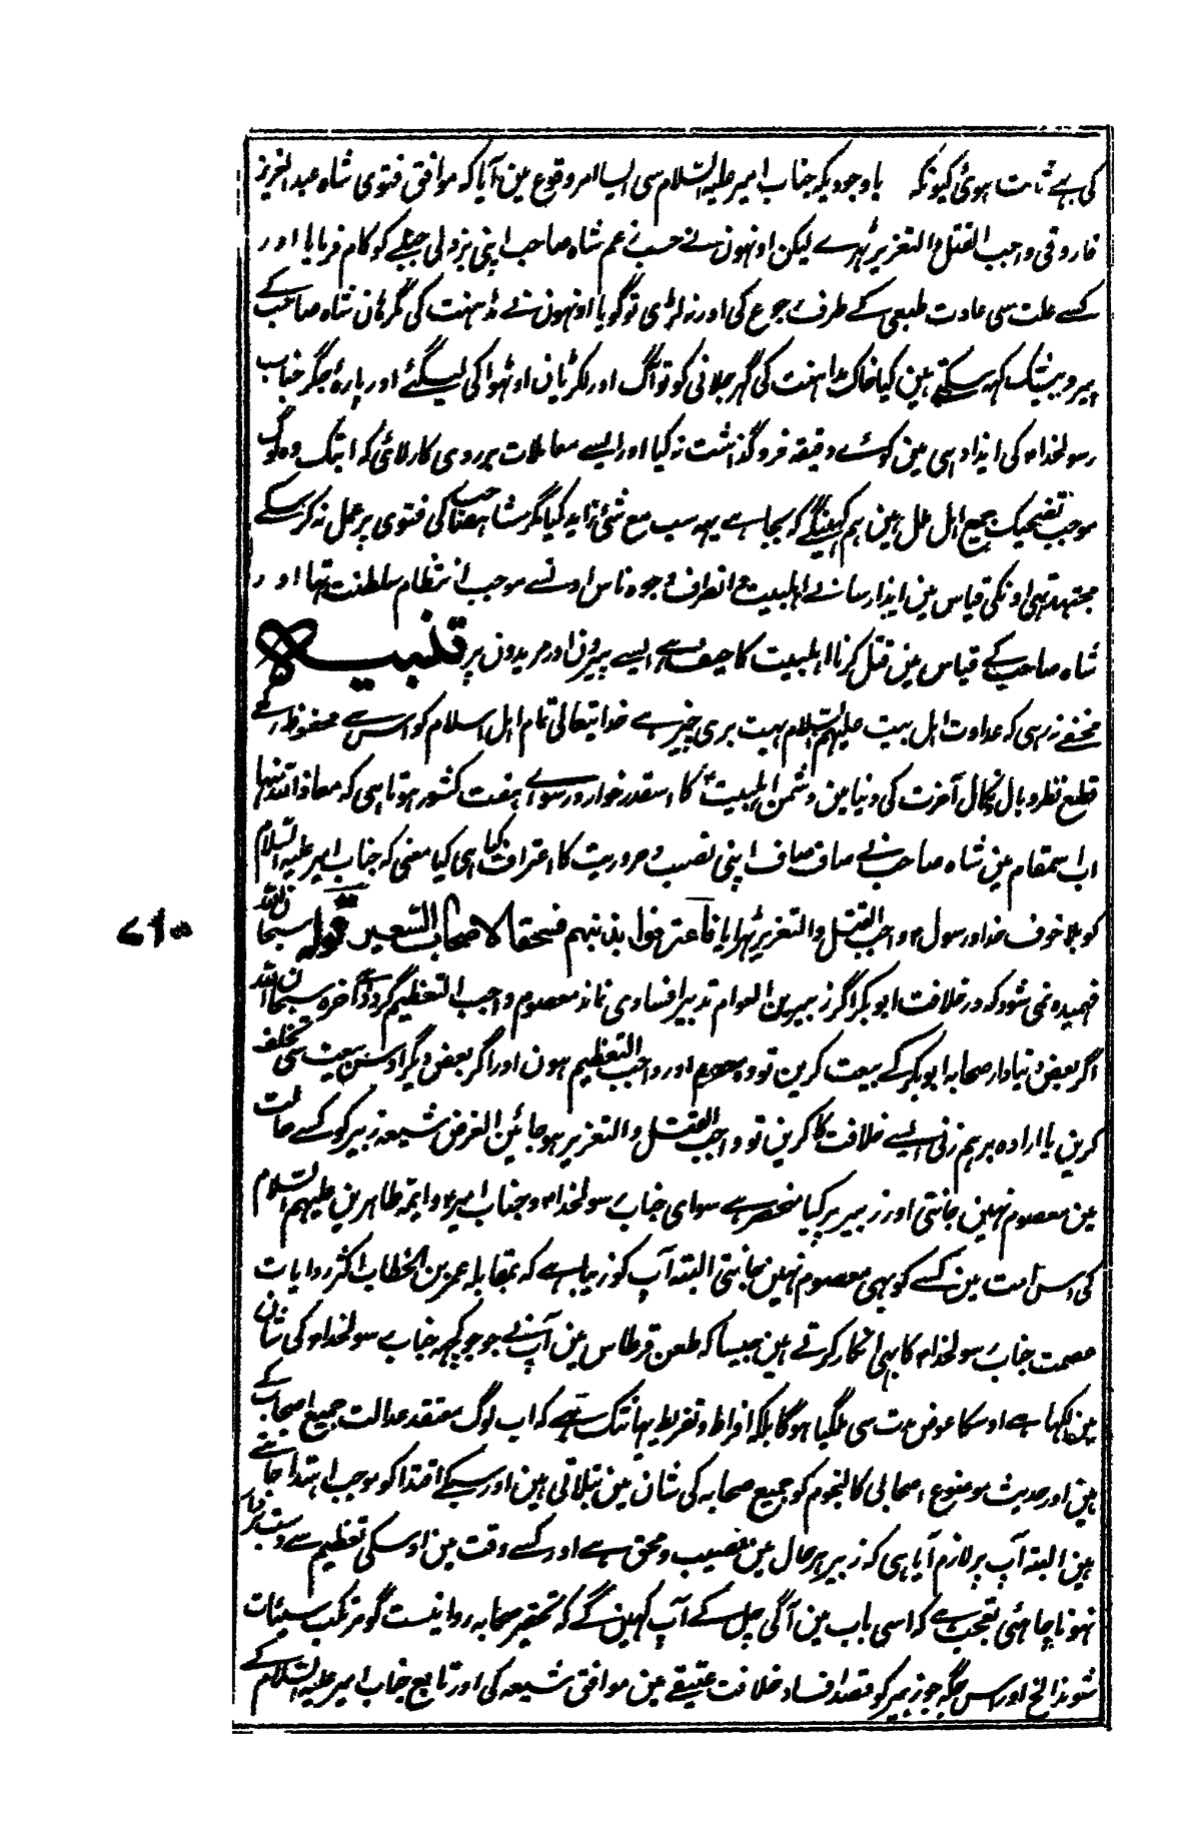 کی ہے ثابت ہوئی کیونکہ باوجودیکہ جناب امیر علیہ السلام سی ایسا امر وقوع مین آیا کہ موافق فتوی شاہ عبد العزیز
فاروقی واجب القتل والتعزیر ٹہرے لیکن اونہون نے حسب زعم شاہ صاحب اپنی بزدلی جبلے کو کام فرمایا اور
کسے علت سی عادت طبعی کے طرف رجوع کی اور نہ لڑی تو گویا اونہون نے مداہنت کی مگر ہان شاہ صاحب کے
پیر و بیشک کہہ سکتے ہین کیا خاک مداہنت کی گہر جلانی کو تو آگ اور لکڑیان اوٹہوا کی لیگئے اور پارۂ جگر جناب
رسولخدا کی ایذا دہی مین کوئے دقیقہ فروگذاشت نہ کیا اور ایسے معاملات پر روی کار لائی کہ ابتک وہ لوگ
موجب تضحیک جمیع اہل ملل ہین ہم کہینگے کہ بجا ہے یہہ سب مع شئ زاید کیا مگر شاہصاحب کی فتوی پر عمل نہ کر سکے
مجتہد تہی اونکی قیاس مین ایذا رسانے اہلبیت و انطراف وجوہ ناس اونسے موجب انتظام سلطنت تہا اور
شاہ صاحب کے قیاس مین قتل کرنا اہلبیت کا حیف ہے ایسے پیرون اور مریدون پر تنبیہ
مخفے نرہی کہ عداوت اہل بیت علیہم السلام بہت بری چیز ہے خدایتعالی تمام اہل اسلام کو اس سے محفوظ رکہے
قطع نظر وبال ونکال آخرت کی دنیا مین دشمن اہلبیت کا اسقدر خوار و رسوای ہفت کشور ہوتا ہی کہ معاذ اللہ منہا
اب اسمقام مین شاہ صاحب نے صاف صاف اپنی نصب و حروریت کا اعتراف کیا ہی کیا معنی کہ جناب امیر علیہ السلام
کو بلا خوف خدا و رسول واجب القتل والتعزیر ٹہرایا فاعترفوا بذنبہم فسحقا لاصحاب السعیر قولہ سبحان اللہ
فہمیدہ نمی شود کہ در خلافت ابوبکر اگر زبیر بن العوام تدبیر افسادی نماید معصوم و واجب التعظیم گردد الی آخرہ سبحان اللہ
اگر بعض دنیادار صحابہ ابوبکر کے بیعت کرین تو وہ معصوم اور واجب التعظیم ہون اور اگر بعض دیگر اوس بیعت سی تخلف
کرین یا ارادہ برہم زنی ایسے خلافت کا کرین تو واجب القتل والتعزیر ہو جائین الغرض شیعہ زبیر کو کسے حالت
مین معصوم نہین جانتی اور زبیر پر کیا منحصر ہے سوای جناب رسولخدا و جناب امیر و ایمہ طاہرین علیہم السلام
کی اس امت مین کسے کو بہی معصوم نہین جانتی البتہ آپ کو زیبا ہے کہ بمقابلہ عمر بن الخطاب اکثر روایات
عصمت جناب رسولخدا کا بہی انکار کرتے ہین جیسا کہ طعن قرطاس مین آپ نے جو جو کچہہ جناب رسولخدا کی شان
مین لکہا ہے اوسکا عوض بہت سی ملگیا ہوگا بلکہ افراط و تفریط یہانتک ہے کہ اب لوگ معتقد عدالت جمیع اصحاب کے
ہین اور حدیث موضوع اصحابی کالنجوم کو جمیع صحابہ کی شان مین بتلاتی ہین اور سبکے اقتدا کو موجب اہتدا جانتے
ہین البتہ آپ پر لازم آیا ہی کہ زبیر ہر حال مین مصیب و محق ہے اور کسے وقت مین اوسکی تعظیم سے دست بردار
نہونا چاہئی تعجب ہے کہ اسی باب مین آگی چل کے آپ کہین گے کہ تحقیر صحابہ روا نیست گو مرتکب سیئات
شوند الخ اور اس جگہ جو زبیر کو قصد افساد خلافت عتیقے مین موافق شیعہ کی اور تابع جناب امیر علیہ السلام کے
۷۱۰